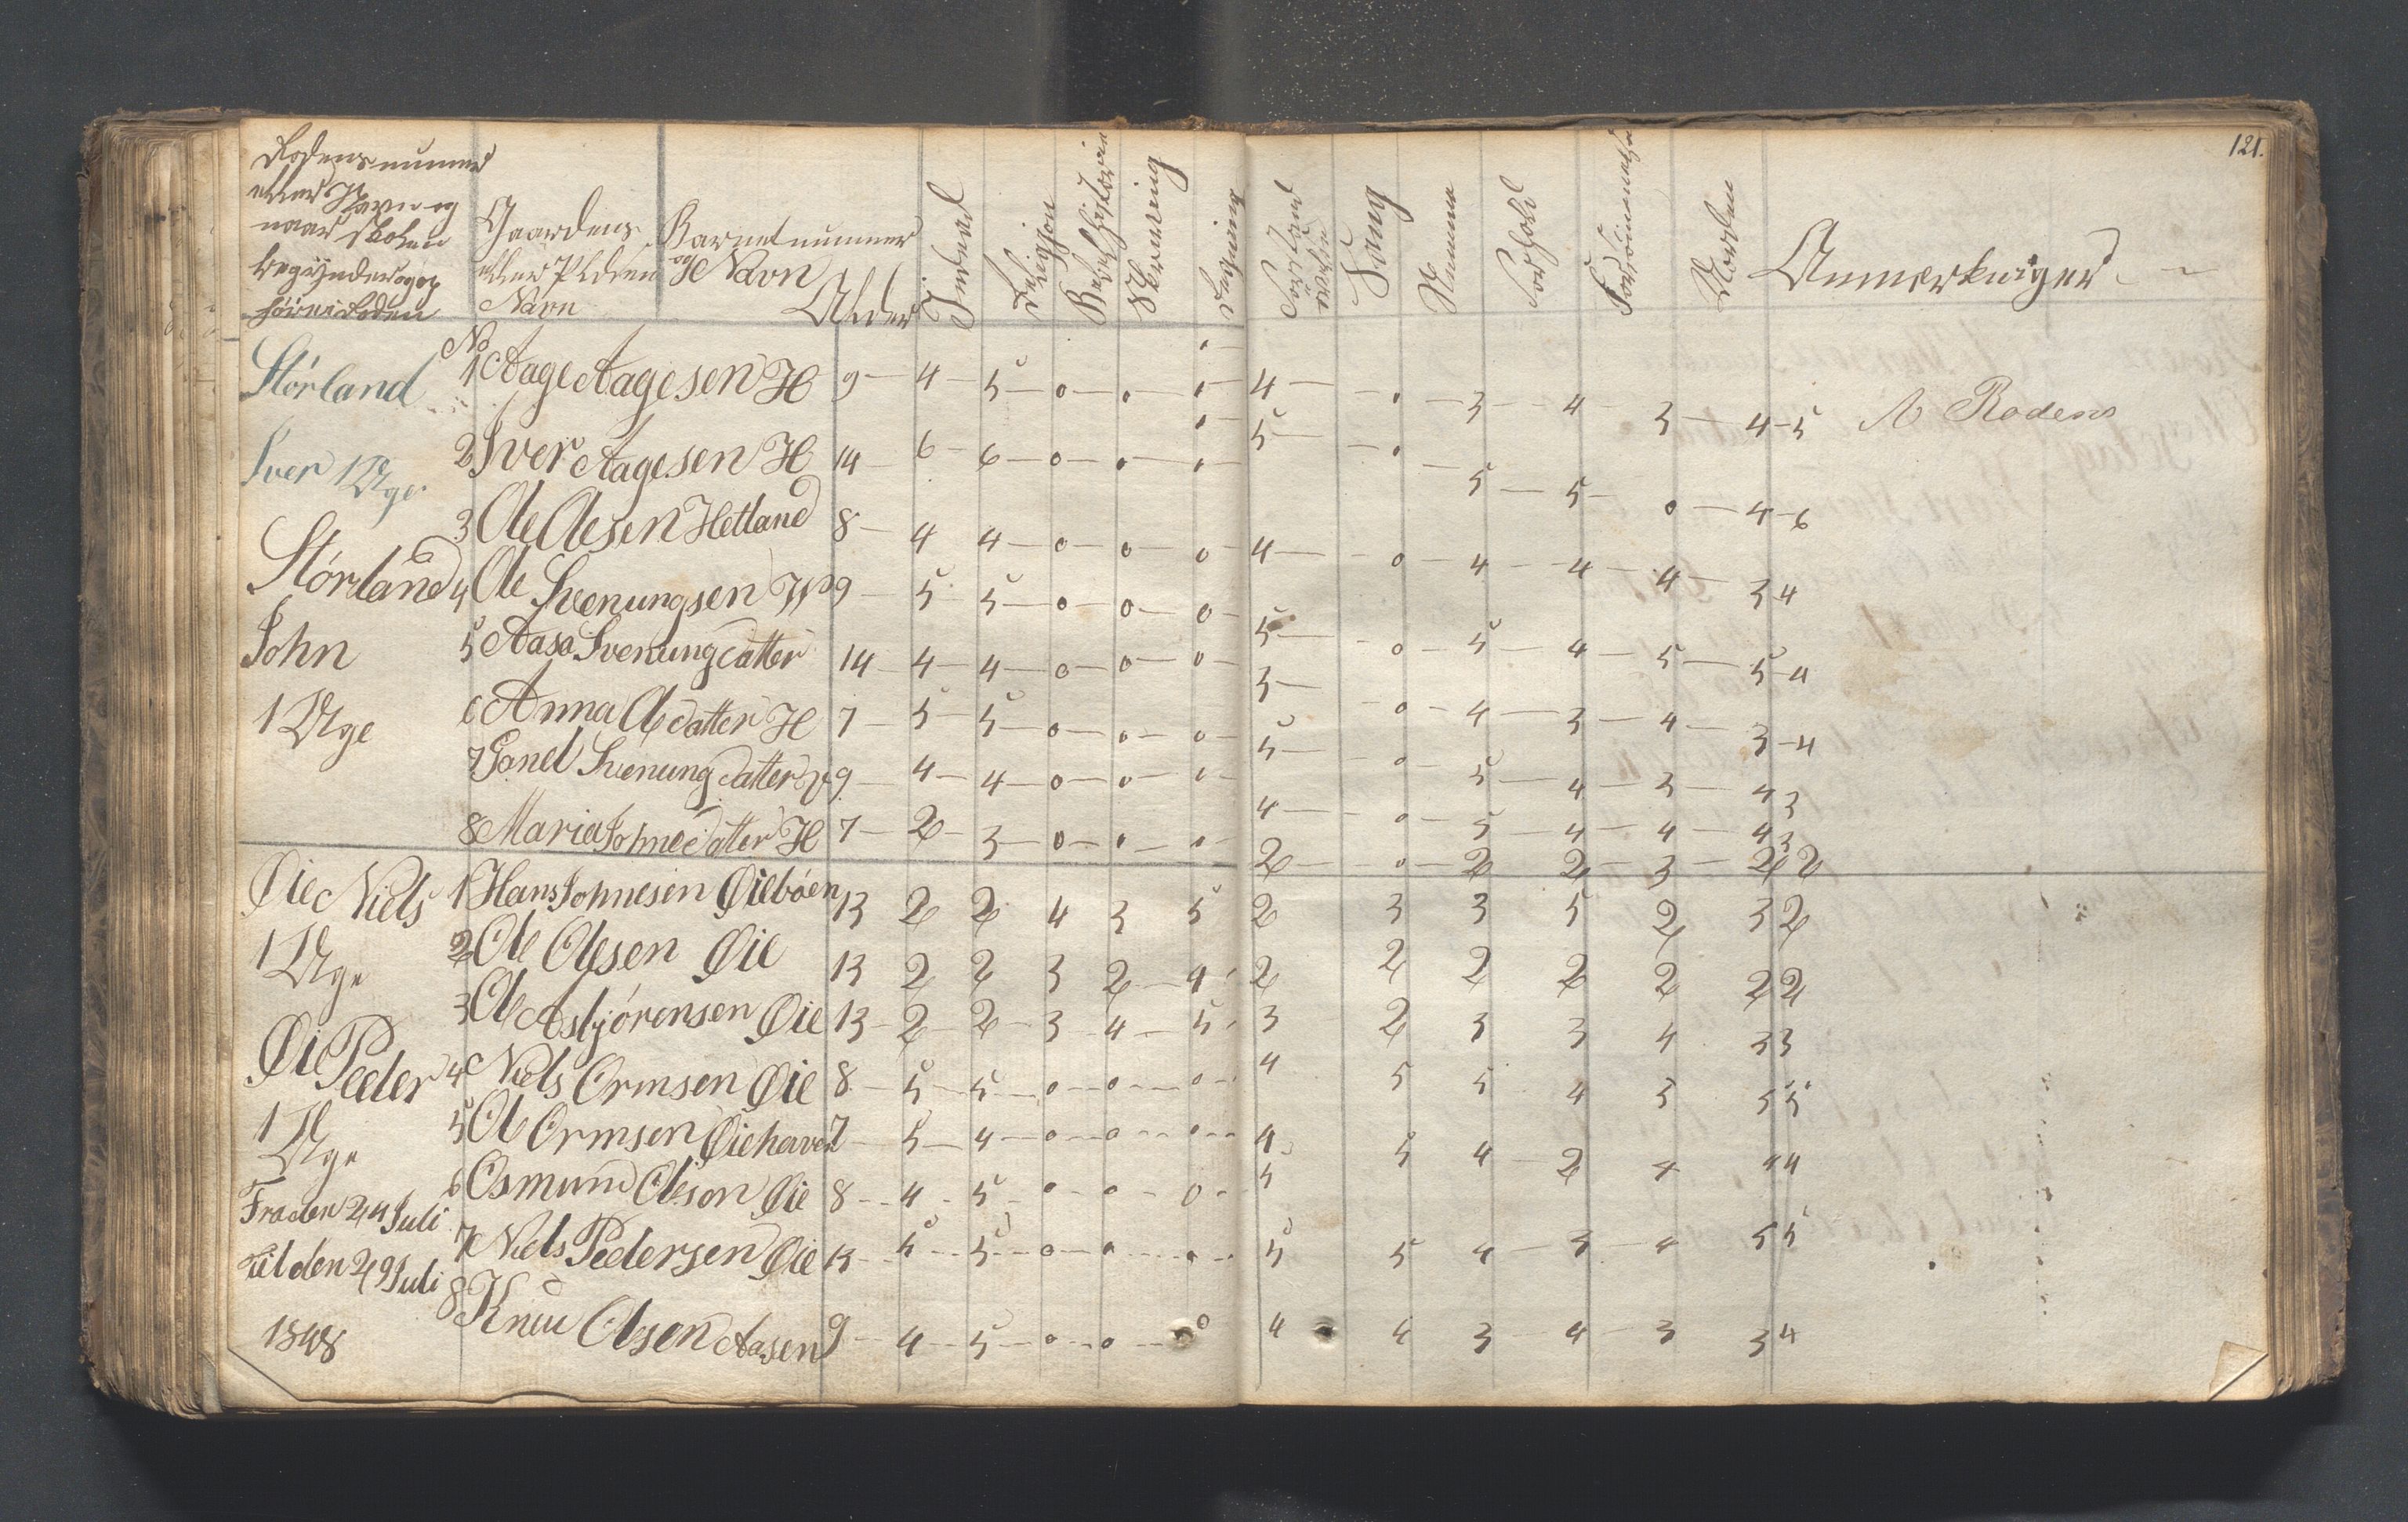 121.
Rodens nummer
eller Navn og
naar Skolen
begynder og op
hører i Roden
Gaardens
eller Pladsens
Navn
Barnet nummer
og Navn
Alder
Religion
Skrivning
Regning
Sang
Forhold
Anmærkninger
Störland No 1 Aage Aagesen H 9 - 4 - 5 - 0 - 0 - 0 - 4 - 0 - 3 - 4 - 3 - 4 - 5 Rodens
Iver 1 Uge 2 Iver Aagesen H 14 - 6 - 6 - 0 - 0 - 0 - 5 - 0 - 5 - 5 - 0 - 4 - 6
3 Ole Olesen Hetland 8 - 4 - 4 - 0 - 0 - 0 - 4 - 0 - 4 - 4 - 4 - 3 4
Störland 4 Ole Svenungsen 9 - 5 - 5 - 0 - 0 - 0 - 5 - 0 - 5 - 4 - 5 - 5 - 4
John 5 Aasa Svenungdatter 14 - 4 - 4 - 0 - 0 - 0 - 3 - 0 - 4 - 3 - 4 - 3 - 4
1 Uge 6 Anna Oledatter H 7 - 5 - 5 - 0 - 0 - 0 - 5 - 0 - 5 - 4 - 3 - 4 3
7 Svenungdatter 9 - 4 - 4 - 0 - 0 - 0 - 4 - 0 - 5 - 4 - 4 - 4 3
8 Maria Johnedatter H 7 - 2 - 3 - 0 - 0 - 0 - 2 - 0 - 2 2 - 3 - 2 2
Øie Niels 1 Hans Johnesen Øieböen 13 2 2 4 3 5 2 3 3 5 2 3 2
1 Uge 2 Ole Olesen Øie 13 2 2 3 2 4 2 2 2 2 2 2 2
3 Ole Asbjörensen Øie 13 - 2 - 2 - 3 - 4 - 5 3 2 3 3 4 3 3
Øie Peder 4 Niels Ormsen Øie 8 - 5 - 5 - 0 - 0 - 0 - 4 5 5 4 3 5 5
1 Uge 5 Ole Ormsen Øiehaven 7 - 5 - 4 - 0 - 0 - 0 - 4 5 4 - 2 4 4 4
Fra den 24 Juli 6 Osmund Oleson Øie 8 - 4 - 5 - 0 - 0 - 0 - 5
til den 29 Juli 7 Niels Pedersen Øie 13 - 5 - 5 - 0 - 0 - 0 - 5 5 4 - 3 - 4 5 5
1848 8 Knud Olsen Aasen 9 - 4 - 5 - 0 - 0 - 0 4 4 3 - 4 - 3 3 4